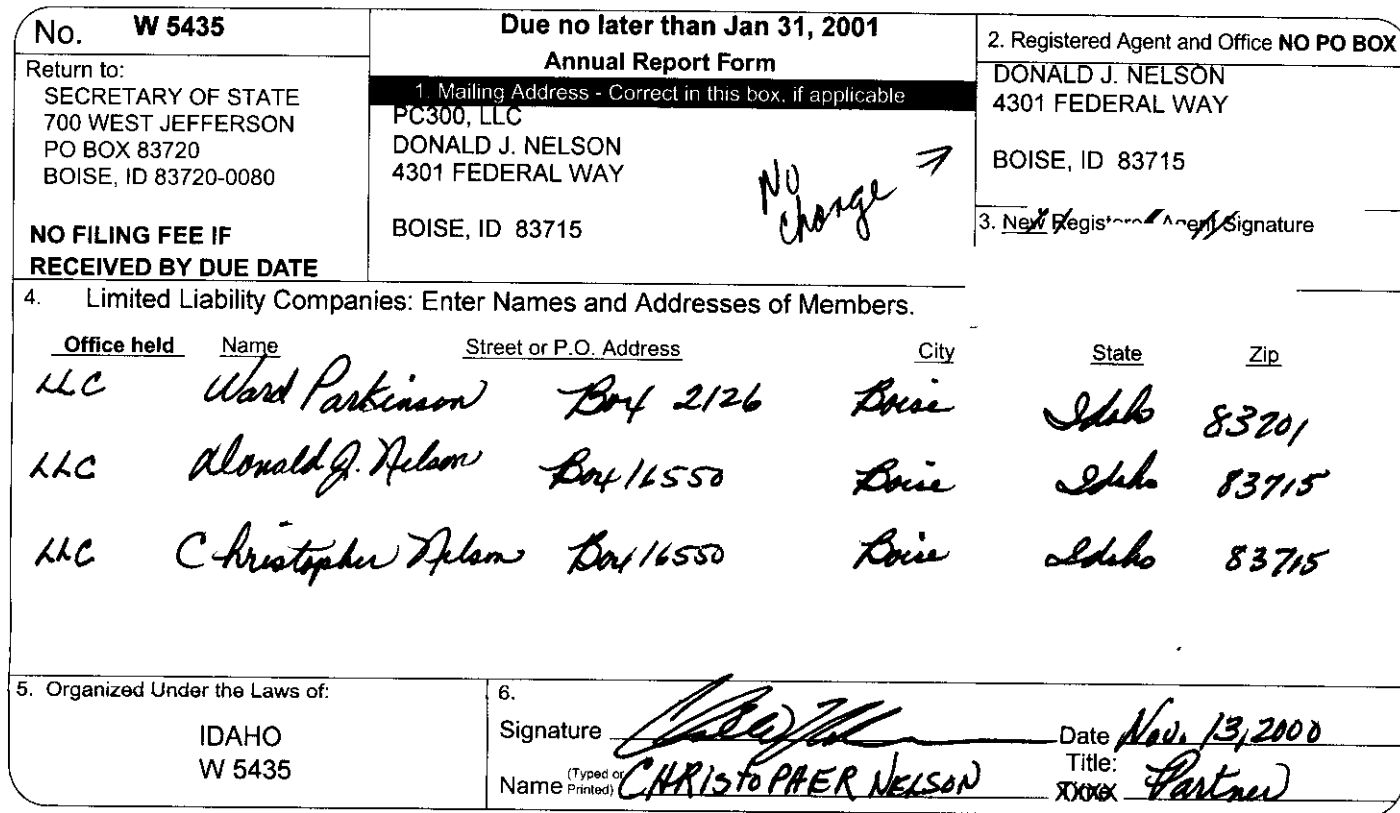 No. W 5435
Return to:
SECRETARY OF STATE
700 WEST JEFFERSON
PO BOX 83720
BOISE, ID 83720-0080
NO FILING FEE IF
RECEIVED BY DUE DATE
Due no later than Jan 31, 2001
Annual Report Form
1. Mailing Address - Correct in this box, if applicable
PC300, LLC
DONALD J. NELSON
4301 FEDERAL WAY
BOISE, ID 83715
No
change
2. Registered Agent and Office NO PO BOX
DONALD J. NELSON
4301 FEDERAL WAY
BOISE, ID 83715
3. New Registered Agent Signature
4. Limited Liability Companies: Enter Names and Addresses of Members.
Office held Name Street or P.O. Address City State Zip
LLC Ward Parkinson Box 2126 Boise Idaho 83201
LLC Donald J. Nelson Box 16550 Boise Idaho 83715
LLC Christopher Nelson Box 16550 Boise Idaho 83715
5. Organized Under the Laws of:
IDAHO
W 5435
6.
Signature Date Nov. 13, 2000
Name (Typed or Printed) CHRISTOPHER NELSON Title: Partner